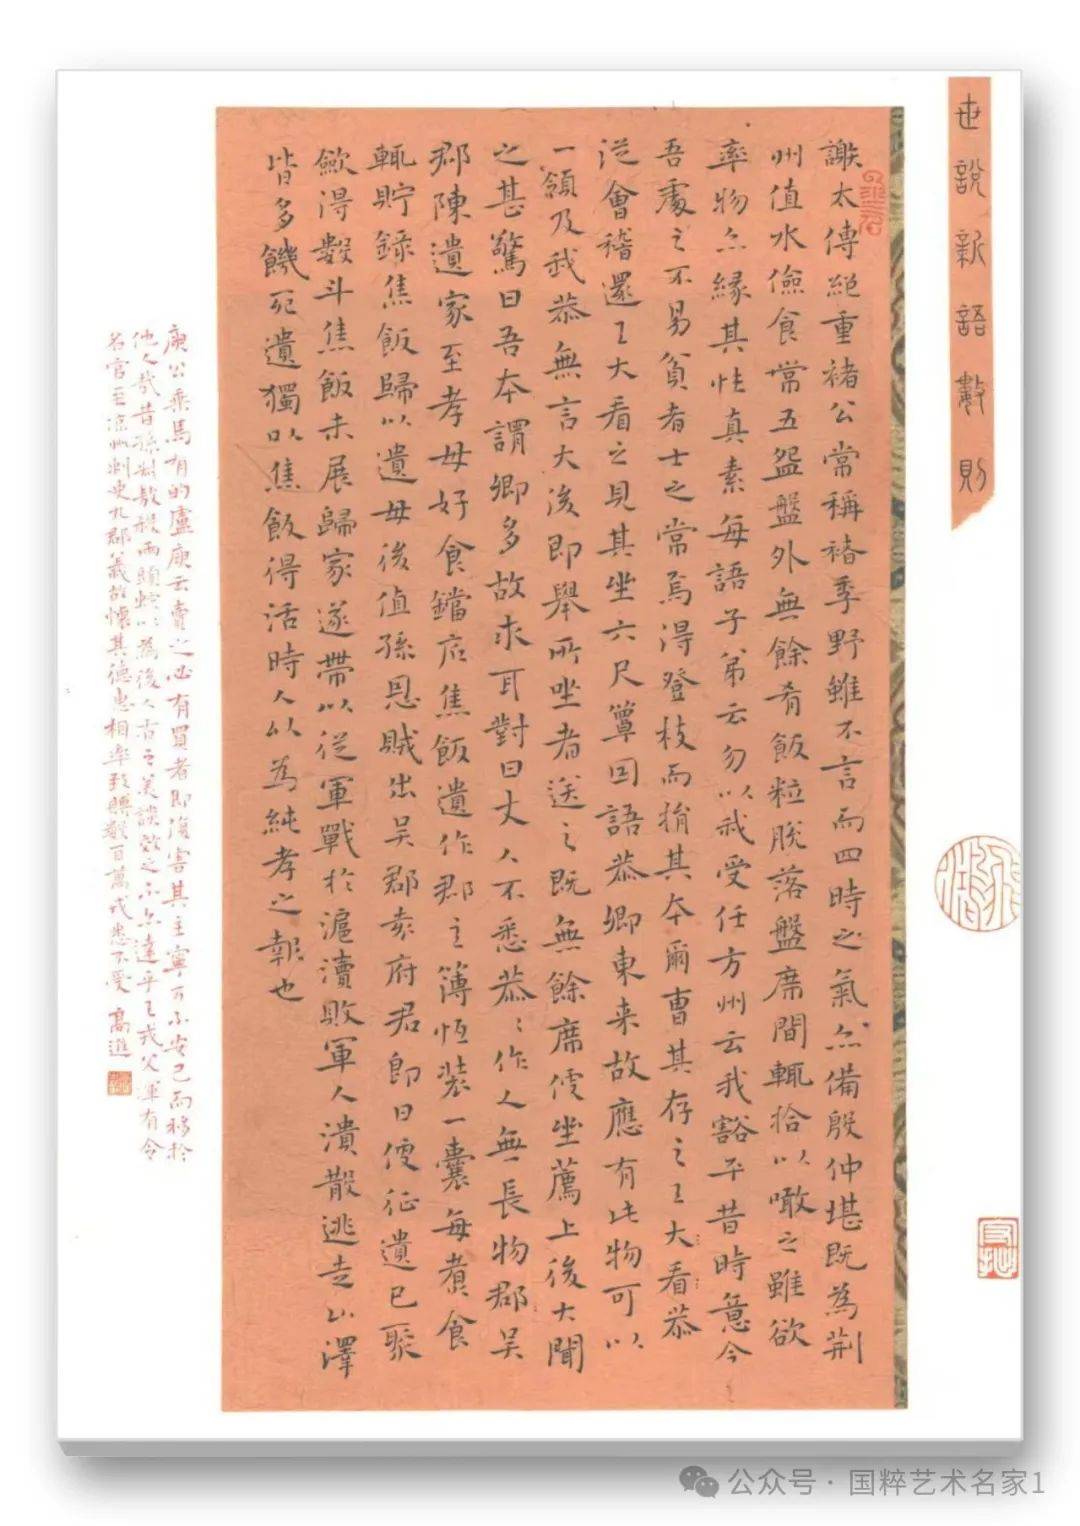 世說新語數則
謝太傅絕重褚公常稱褚季野雖不言而四時之氣亦備殷仲堪既為荊
州值水儉食常五盌盤外無餘肴飯粒脫落盤席間輒拾以噉之雖欲
率物亦緣其性真素每語子弟云勿以我受任方州云我豁平昔時意今
吾處之不易貧者士之常焉得登枝而捐其本爾曹其存之王大看恭
從會稽還王大看之見其坐六尺簟回語恭卿東来故應有此物可以
一領及我恭無言大後即舉所坐者送之既無餘席便坐薦上後大聞
之甚驚曰吾本謂卿多故求耳對曰丈人不悉恭〻作人無長物郡吳
郡陳遺家至孝母好食鐺底焦飯遺作郡主簿恆裝一囊每煮食
輒貯錄焦飯歸以遺母後值孫恩賊出吳郡袁府君即日便征遺已聚
歛得數斗焦飯未展歸家遂帶以從軍戰於滬瀆敗軍人潰散逃走山澤
皆多饑死遺獨以焦飯得活時人以為純孝之報也
庾公乘馬有的盧庾云賣之必有買者即復害其主寧可不安己而移於
他人哉昔孫叔敖殺兩頭蛇以為後人古之美談效之不亦達乎王戎父渾有令
名官至涼州刺史九郡義故懷其德惠相率致賻數百萬戎悉不受 高進
公众号 · 国粹艺术名家1